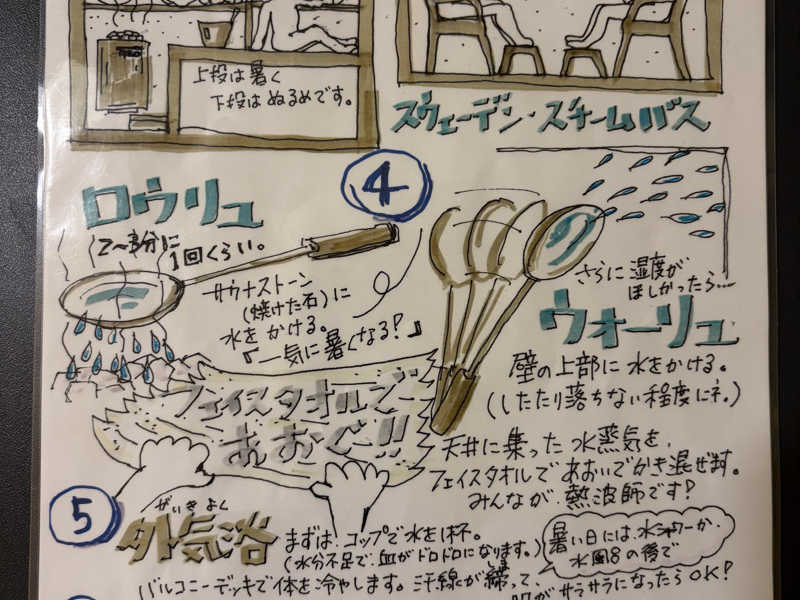 上段は暑く
下段はぬるめです。
スウェーデン・スチームバス
4
ロウリュ
1回くらい。
サウナストーン
(焼けた石)に
水をかける。
『一気に暑くなる!』
さらに湿度が
ほしかったら…
ウォーリュ
壁の上部に水をかける。
(したたり落ちない程度にネ。)
フェイスタオルで
あおぐ!!
天井に集った水蒸気を、
フェイスタオルであおいでかき混ぜます。
みんなが、熱波師です!
5
がいきよく
外気浴
まずは!コップで水を1杯。
(水分不足で、血がドロドロになります。)
暑い日には、水シャワーか、
水風呂の後で
バルコニーデッキで体を冷やします。汗線が締って、
肌がサラサラになったらOK!